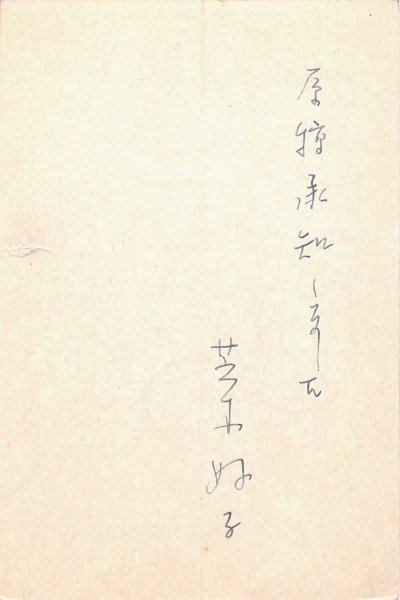 原稿承知しました
芝木好子